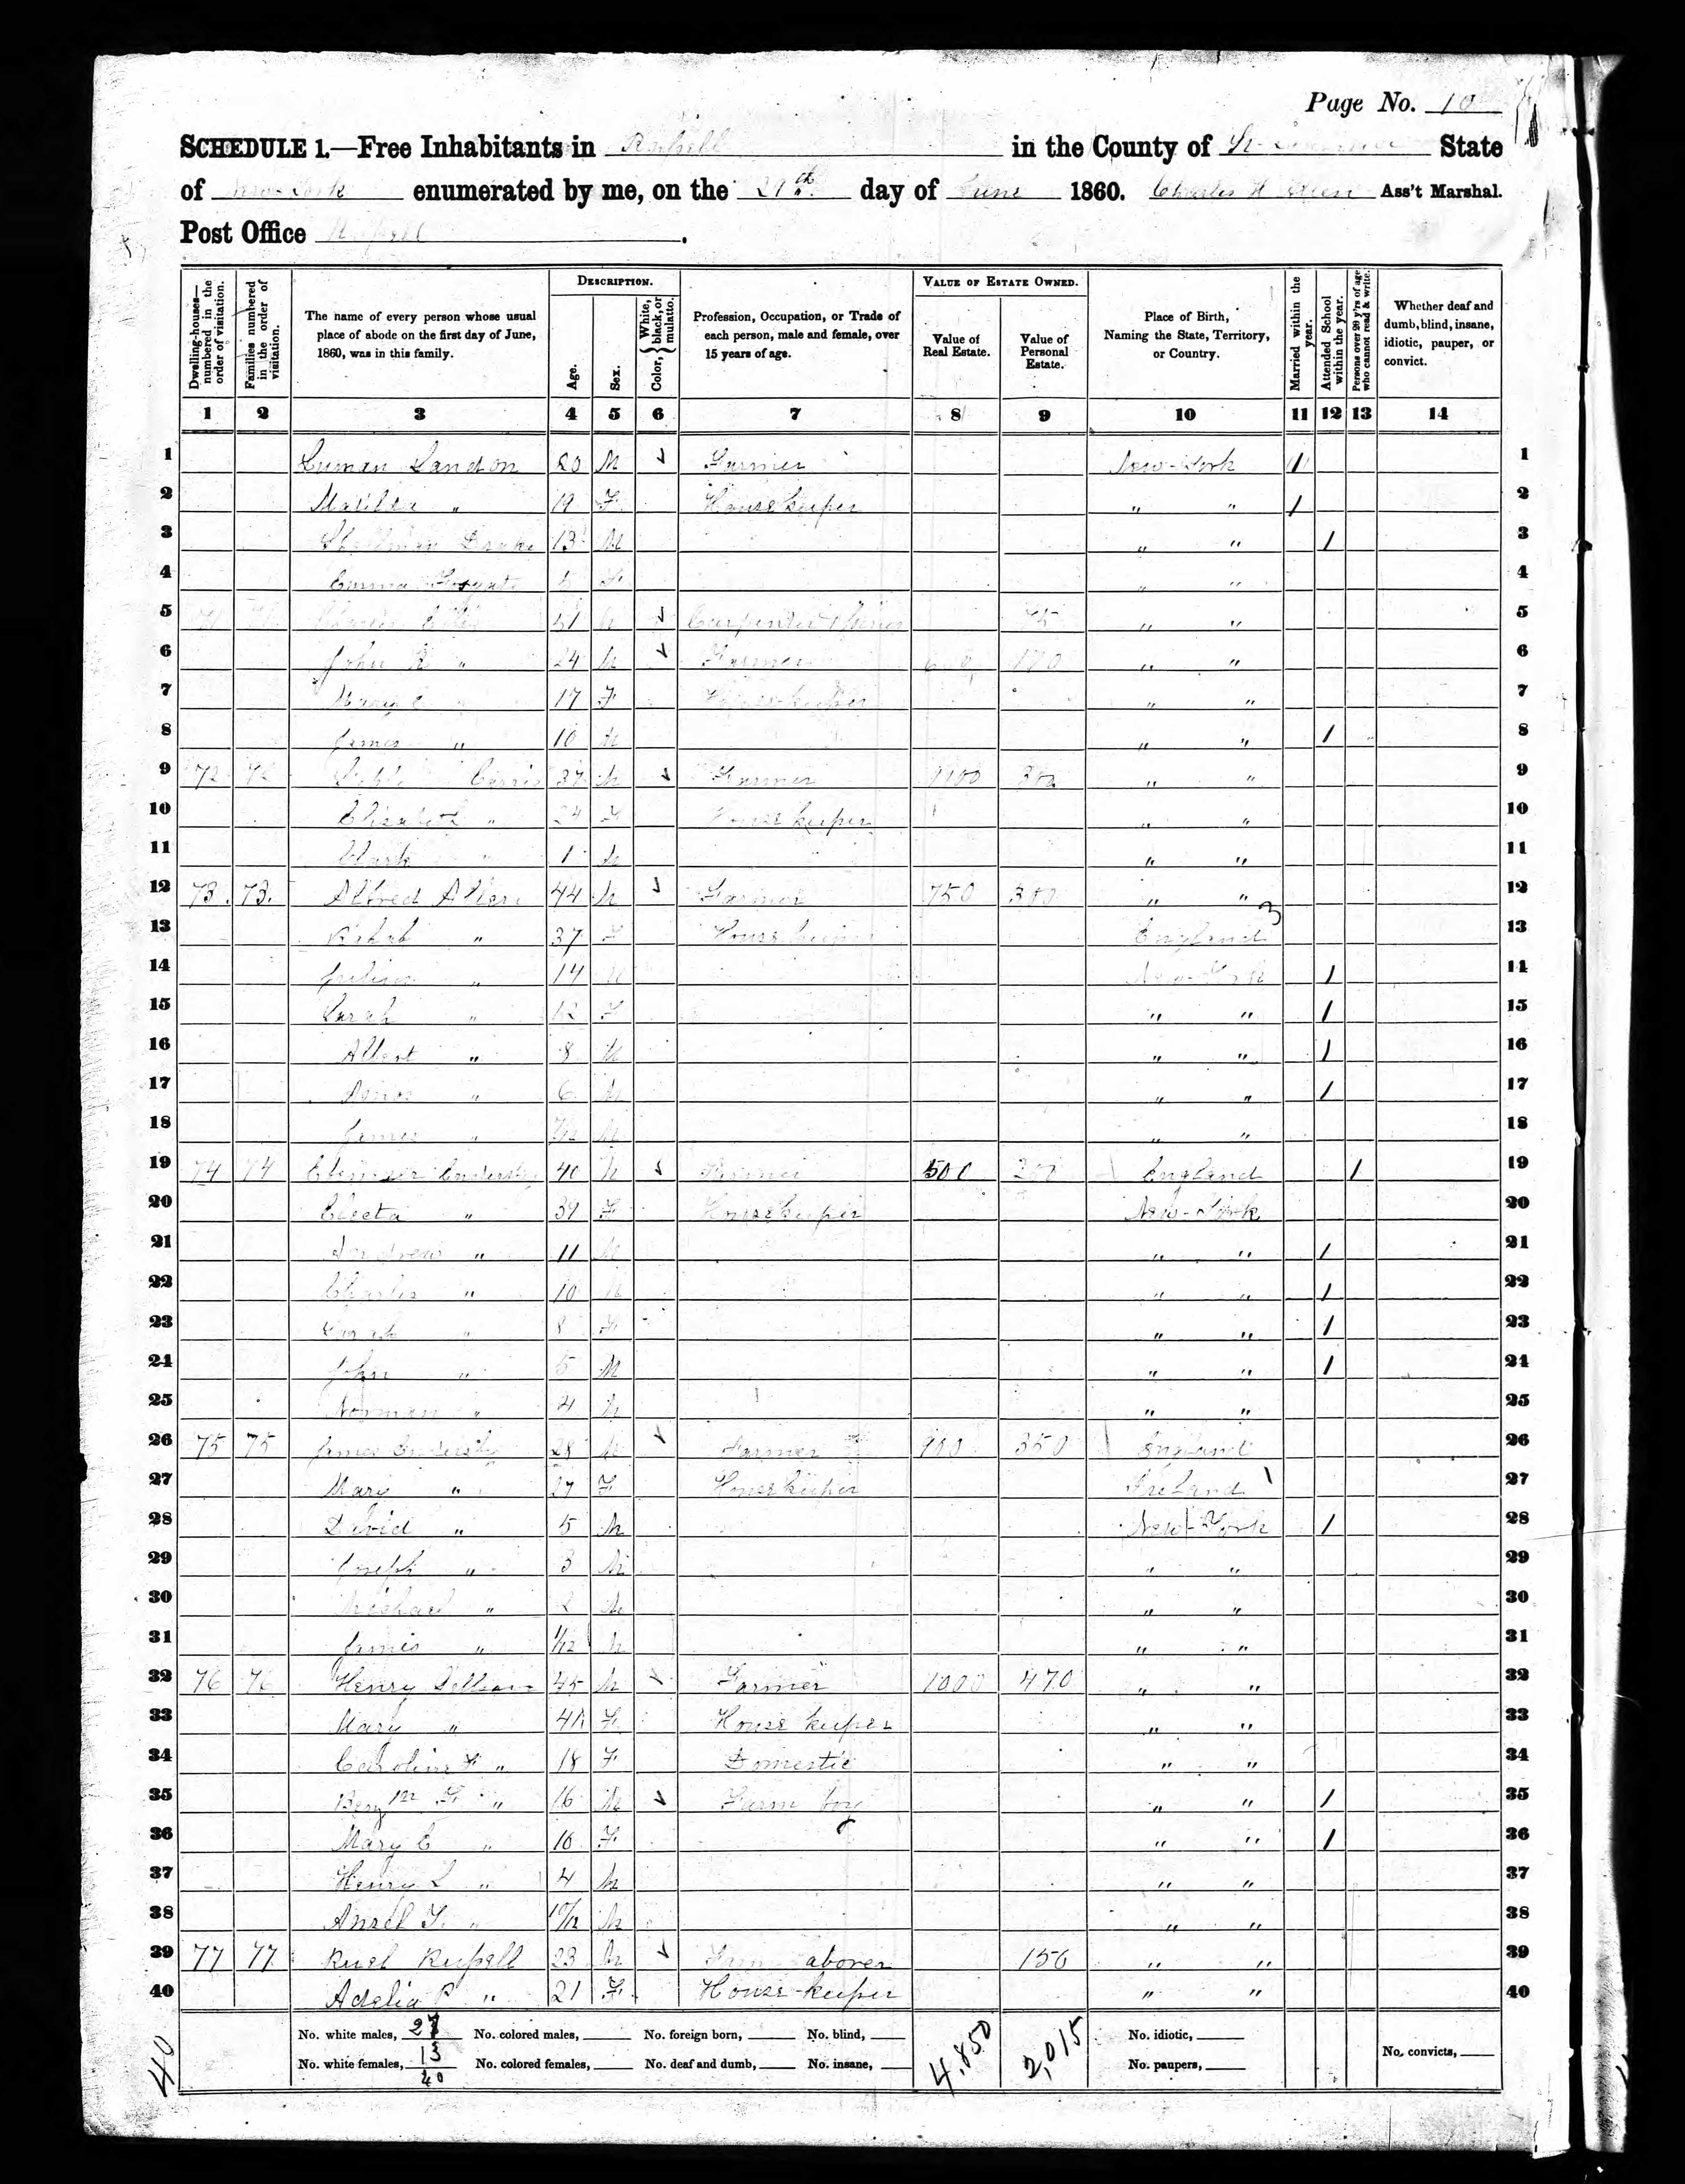 Page No. 10
SCHEDULE 1.—Free Inhabitants in Russell in the County of St. Lawrence State
of New-York enumerated by me, on the 29th day of June 1860. Charles H. Ass't Marshal.
Post Office Russell.
Dwelling-houses—numbered in the order of visitation. Families numbered in the order of visitation. The name of every person whose usual place of abode on the first day of June, 1860, was in this family. DESCRIPTION. Age. Sex. Color, {White, black, or mulatto. Profession, Occupation, or Trade of each person, male and female, over 15 years of age. VALUE OF ESTATE OWNED. Value of Real Estate. Value of Personal Estate. Place of Birth, Naming the State, Territory, or Country. Married within the year. Attended School within the year. Persons over 20 y'rs of age who cannot read & write. Whether deaf and dumb, blind, insane, idiotic, pauper, or convict.
1 2 3 4 5 6 7 8 9 10 11 12 13 14
1 Luman Landon 20 M ✓ Farmer New-York / 1
2 Matilda " 19 F House keeper " " / 2
3 Drake 13 M " " / 3
4 Emma 5 F " " 4
5 71 Charles 51 M ✓ Carpenter & Joiner 75 " " 5
6 John R " 24 M ✓ Farmer 600 170 " " 6
7 Mary E " 17 F House-keeper " " 7
8 James " 10 M " " / 8
9 72 72 37 M ✓ Farmer 1100 300 " " 9
10 Elizabeth " 24 F House keeper " " 10
11 Clark " 1 M " " 11
12 73. 73. Alfred Allen 44 M ✓ Farmer 750 300 " " 12
13 Rahab " 37 F House keeper England 3 13
14 " 14 M New-York / 14
15 Sarah " 12 F " " / 15
16 Albert " 8 M " " / 16
17 Amos " 6 M " " / 17
18 James " 7/12 M " " 18
19 74 74 Ebenezer Endersby 40 M ✓ Farmer 500 200 England / 19
20 Electa " 39 F House keeper New-York 20
21 Andrew " 11 M " " / 21
22 Charles " 10 M " " / 22
23 Sarah " 8 F " " / 23
24 John " 5 M " " / 24
25 Norman " 4 M " " 25
26 75 75 James Endersby 28 M ✓ Farmer 900 350 England 26
27 Mary " 27 F House keeper Ireland 1 27
28 David " 5 M New-York / 28
29 Joseph " 3 M " " 29
30 Michael " 2 M " " 30
31 James " 1/12 M " " 31
32 76 76 Henry 45 M ✓ Farmer 1000 470 " " 32
33 Mary " 41 F House keeper " " 33
34 Caroline F " 18 F Domestic " " 34
35 Benjm F. " 16 M ✓ Farm boy " " / 35
36 Mary E " 10 F " " / 36
37 Henry L " 4 M " " 37
38 Ansel F. " 10/12 M " " 38
39 77 77 Ruel Russell 23 M ✓ Farm laborer 150 " " 39
40 Adelia P " 21 F House-keeper " " 40
No. white males, 27 No. colored males, No. foreign born, No. blind, No. idiotic,
No. white females, 13 No. colored females, No. deaf and dumb, No. insane, 4,850 2,015 No. paupers, No. convicts,
40
40